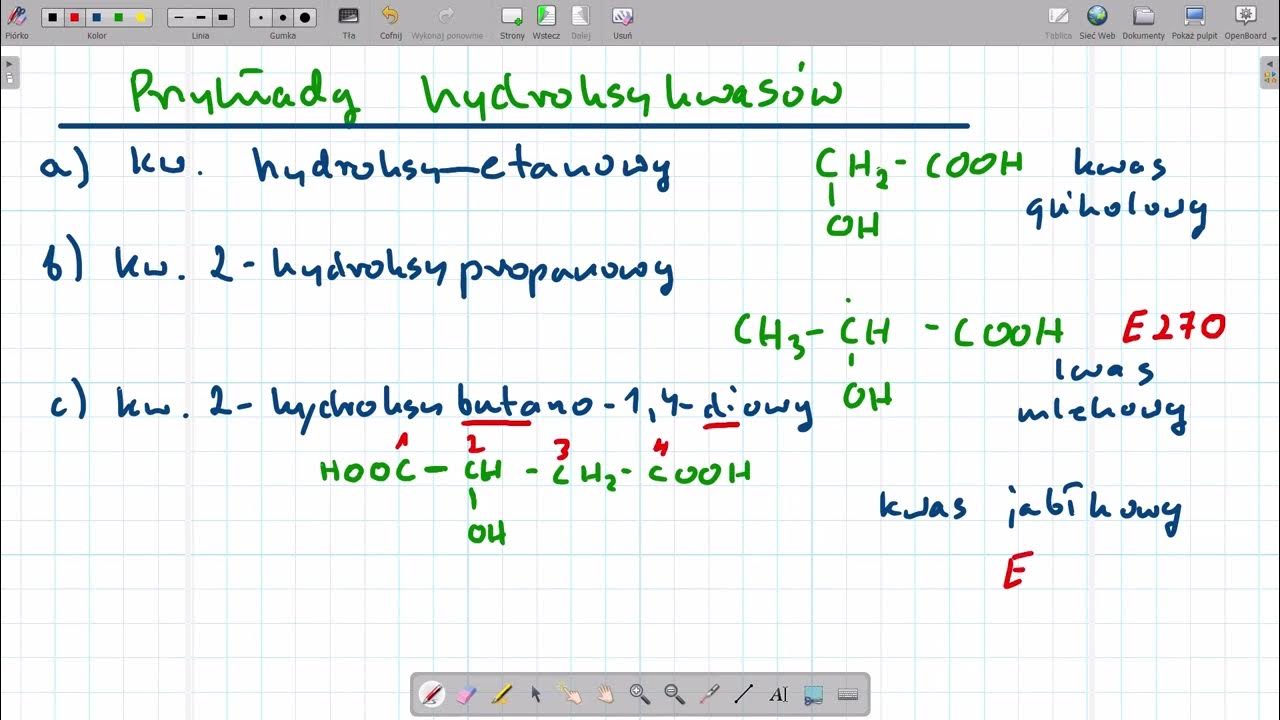 Piórko Kolor Linia Gumka Tła Cofnij Wykonaj ponownie Strony Wstecz Dalej Usuń Tablica Sieć Web Dokumenty Pokaż pulpit OpenBoard
Przykłady hydroksykwasów
a) kw. hydroksy-etanowy CH2 - COOH kwas
OH glikolowy
b) kw. 2 - hydroksypropanowy
CH3 - CH - COOH E270
OH kwas
mlekowy
c) kw. 2 - hydroksybutano - 1,4 - diowy
1 2 3 4
HOOC - CH - CH2 - COOH
OH
kwas jabłkowy
E
AI